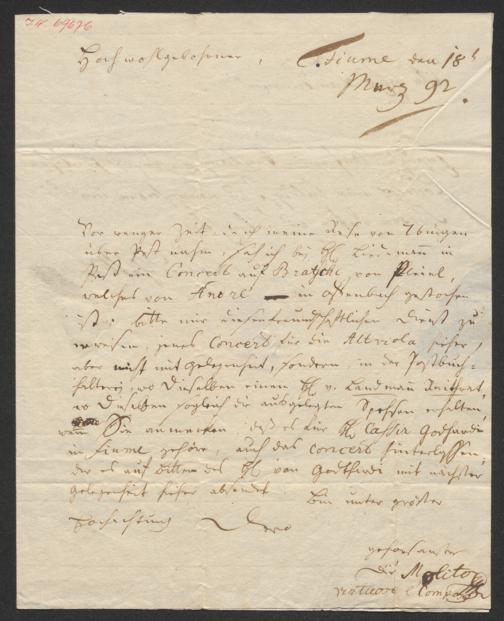 I.N. 69676
Hochwohlgebohrner, Fiume den 18t
Marz 92.
Vor weniger Zeit, da ich meine Reise von
über Pest nahm, sah ich bei H: in
Pest ein Concert auf Bratsche von Pleiel,
welches von André in Offenbach gestochen
ist; bitte mir diesen freundschaftlichen Dienst zu
erweisen, jenes Concert für die Alt viola hieher,
aber nicht mit gelegenheit, sondern, in der Postbuch-
halterey, wo dieselben einen H: v. Landmañ
wo dieselben sogleich die ausgelegten Spessen erhalten,
Sie anmerken, daß es für H: Cassir Godhardi
in Fiume gehöre, auch das Concert hinterlassen,
der es auf bitten des H: von Godthardi mit nächster
gelegenheit hieher absendet Bin unter größter
Hochachtung Dero
gehorsamster
Molitor
virtuos e Compositor